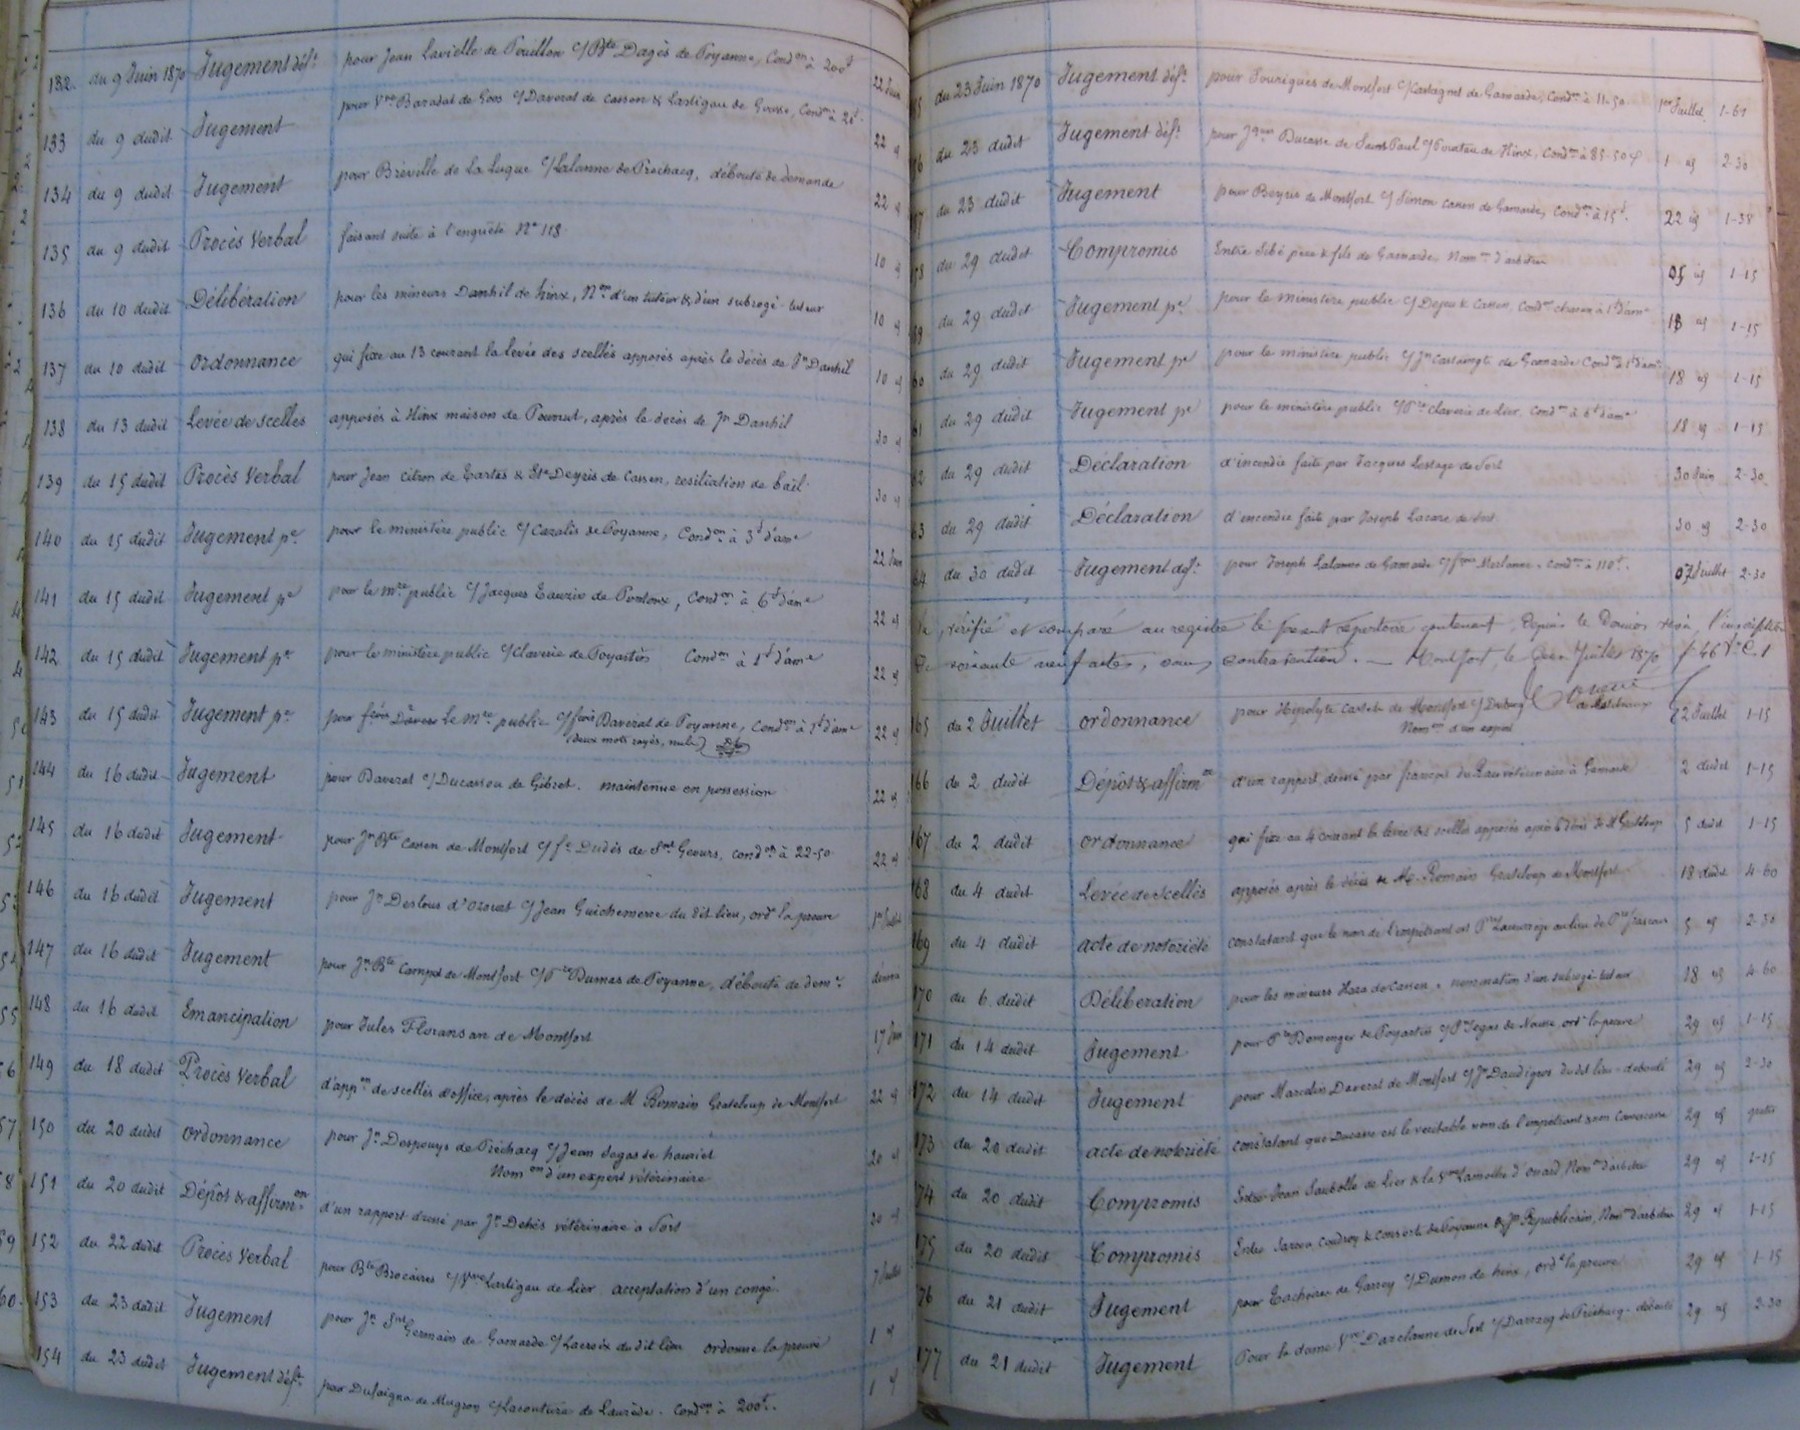 132 du 9 Juin 1870 Jugement déf.t pour Jean Lavielle de Pouillon c/ Bte Dagès de Poyanne, Cond.on à 200f 22 Juin
133 du 9 dudit Jugement pour Vve Baradat de Goos c/ Daverat de Cassen & Lartigau de Gousse, Cond.on à 20f. 22 "
134 du 9 dudit Jugement pour Bréville de La Luque c/ Lalanne de Préchacq, débouté de demande 22 "
135 du 9 dudit Procès Verbal faisant suite à l'enquête N° 118 10 "
136 du 10 dudit Délibération pour les mineurs Danhil de hinx, N.on d'un tuteur & d'un subrogé tuteur 10 "
137 du 10 dudit Ordonnance qui fixe au 13 courant la levée des scellés apposés après le décès de Jn Danhil 10 "
138 du 13 dudit Levée de scellés apposés à Hinx maison de Pournut, après le décès de Jn Danhil 30 "
139 du 15 dudit Procès Verbal pour Jean Citron de Tartas & Ete Deyris de Cassen, resiliation de bail 30 "
140 du 15 dudit Jugement pe pour le ministère public c/ Cazalis de Poyanne, Cond.on à 3f d'ame 22 Juin
141 du 15 dudit Jugement pe pour le mre public c/ Jacques Lauzin de Pontonx, Cond.on à 6f d'ame 22 "
142 du 15 dudit Jugement pe pour le ministère public c/ Claverie de Poyartin Cond.on à 1f d'ame 22 "
143 du 15 dudit Jugement pe pour Le mre public c/ fçois Daverat de Poyanne, Cond.on à 1f d'ame 22 "
(deux mots rayés, nuls)
144 du 16 dudit Jugement pour Daverat c/ Ducassou de Gibret. maintenue en possession 22 "
145 du 16 dudit Jugement pour Jn Bte Cassen de Montfort c/ fs Dudès de Snt Geours, cond.on à 22-50 22 "
146 du 16 dudit Jugement pour Jn Deslous d'Ozourt c/ Jean Guichemerre du dit lieu, ord. la preuve 1er Juillet
147 du 16 dudit Jugement pour Jn Bte Campet de Montfort c/ Pre Dumas de Poyanne, débouté de dem.e
148 du 16 dudit Emancipation pour Jules Floransan de Montfort 17 Juin
149 du 18 dudit Procès Verbal d'app.on de scellés d'office, après le décès de M Romain Grateloup de Montfort 22 "
150 du 20 dudit Ordonnance pour Jn Despouys de Préchacq c/ Jean Segas de hauriet 20 "
Nom.on d'un expert vétérinaire
151 du 20 dudit Dépôt & affirm.on d'un rapport dressé par Jn Dehès vétérinaire à Sort 20 "
152 du 22 dudit Procès Verbal pour Bte Brocaires c/ Vve Lartigau de Lier acceptation d'un congé 7 Juillet
153 du 23 dudit Jugement pour Jn Snt Germain de Gamarde c/ Lacroix du dit lieu ordonne la preuve 1 "
154 du 23 dudit Jugement déf.t pour Dufaigna de Mugron c/ Lacouture de Laurède. Cond.on à 200f. 1 "
55 du 23 Juin 1870 Jugement déf.t pour Touriques de Montfort c/ Castagnet de Gamarde, Cond.on à 11-50 1er Juillet 1-61
56 du 23 dudit Jugement déf.t pour Jques Ducasse de Saint Paul c/ Pourtau de Hinx, Cond.on à 85-50 1 " 2-30
57 du 23 dudit Jugement pour Beyris de Montfort c/ Simon Cassen de Gamarde, Cond.on à 15f. 22 " 1-38
58 du 29 dudit Compromis Entre Sibé père & fils de Gamarde. Nom.on d'arbitre 05 " 1-15
59 du 29 dudit Jugement pe pour le ministère public c/ Dejeu & Cassen, Cond.on chacun à 1f d'ame 18 " 1-15
60 du 29 dudit Jugement pe pour le ministère public c/ Jn Castaingts de Gamarde Cond.on à 1f d'ame 18 " 1-15
61 du 29 dudit Jugement pe pour le ministère public c/ Pre Claverie de Lier. Cond.on à 6f d'ame 18 " 1-15
62 du 29 dudit Déclaration d'incendie faite par Jacques Lestage de Sort 30 Juin 2-30
63 du 29 dudit Déclaration d'incendie faite par Joseph Lacaze de Sort 30 " 2-30
64 du 30 dudit Jugement déf.t pour Joseph Lalanne de Gamarde c/ Merlanne. cond.on à 110f. 07 Juillet 2-30
Vu, vérifié et comparé au registre le présent répertoire contenant, depuis le Dernier visa, l'inscription
De soixante neuf actes, sans contravention. — Montfort, le Juillet 1870 f° 46 Vo C. 1
165 du 2 Juillet Ordonnance pour Hipolyte Castets de Montfort c/ Dubroq 2 Juillet 1-15
Nom.on d'un expert
166 du 2 dudit Dépôt & affirm.on d'un rapport dressé par françois du Rau vétérinaire à Gamarde 2 dudit 1-15
167 du 2 dudit Ordonnance qui fixe au 4 courant la levée des scellés apposés après le décès de M Grateloup 5 dudit 1-15
168 du 4 dudit Levée de Scellés apposés après le décès de M. Romain Grateloup de Montfort 18 dudit 4-60
169 du 4 dudit acte de notoriété constatant que le nom de l'impétrant est Pre au lieu de Pre françois 5 " 2-30
170 du 6 dudit Déliberation pour les mineurs Hara de Cassen. nomination d'un subrogé tuteur 18 " 4-60
171 du 14 dudit Jugement pour Pre Domenger de Poyartin c/ Pre Segas de Nousse ord. la preuve 29 " 1-15
172 du 14 dudit Jugement pour Marcelin Daverat de Montfort c/ Jn Daudignon du dit lieu - debouté 29 " 2-30
173 du 20 dudit acte de notoriété constatant que Ducasse est le veritable nom de l'impétrant & non 29 " gratis
174 du 20 dudit Compromis Entre Jean Saubolle de Lier & la Vve Lamothe d'onard, Nom.on d'arbitre 29 " 1-15
175 du 20 dudit Compromis Entre Coudroy & consorts de Poyanne & Jn Republicain, Nom.on d'arbitre 29 " 1-15
176 du 21 dudit Jugement pour Cachouau de Garrey c/ Dumon de hinx, ord. la preuve 29 " 1-15
177 du 21 dudit Jugement Pour la dame Vve Darclanne de Sort c/ Darezcq de Préchacq - débouté 29 " 2-30